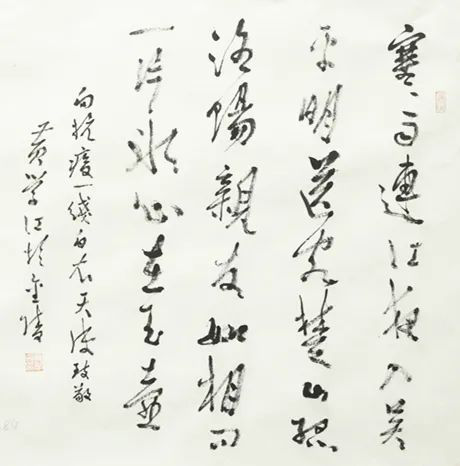 寒雨連江夜入吴
平明送客楚山孤
洛陽親友如相问
一片冰心在玉壶
向抗疫一线白衣天使致敬
黄学江於金陵